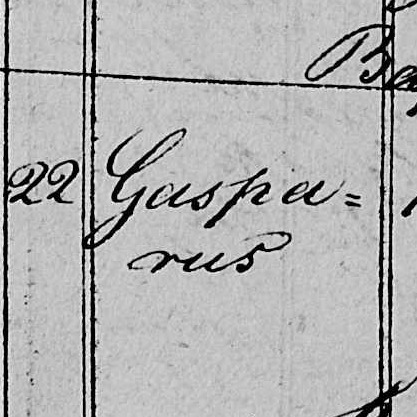 22 Gaspa=
rus